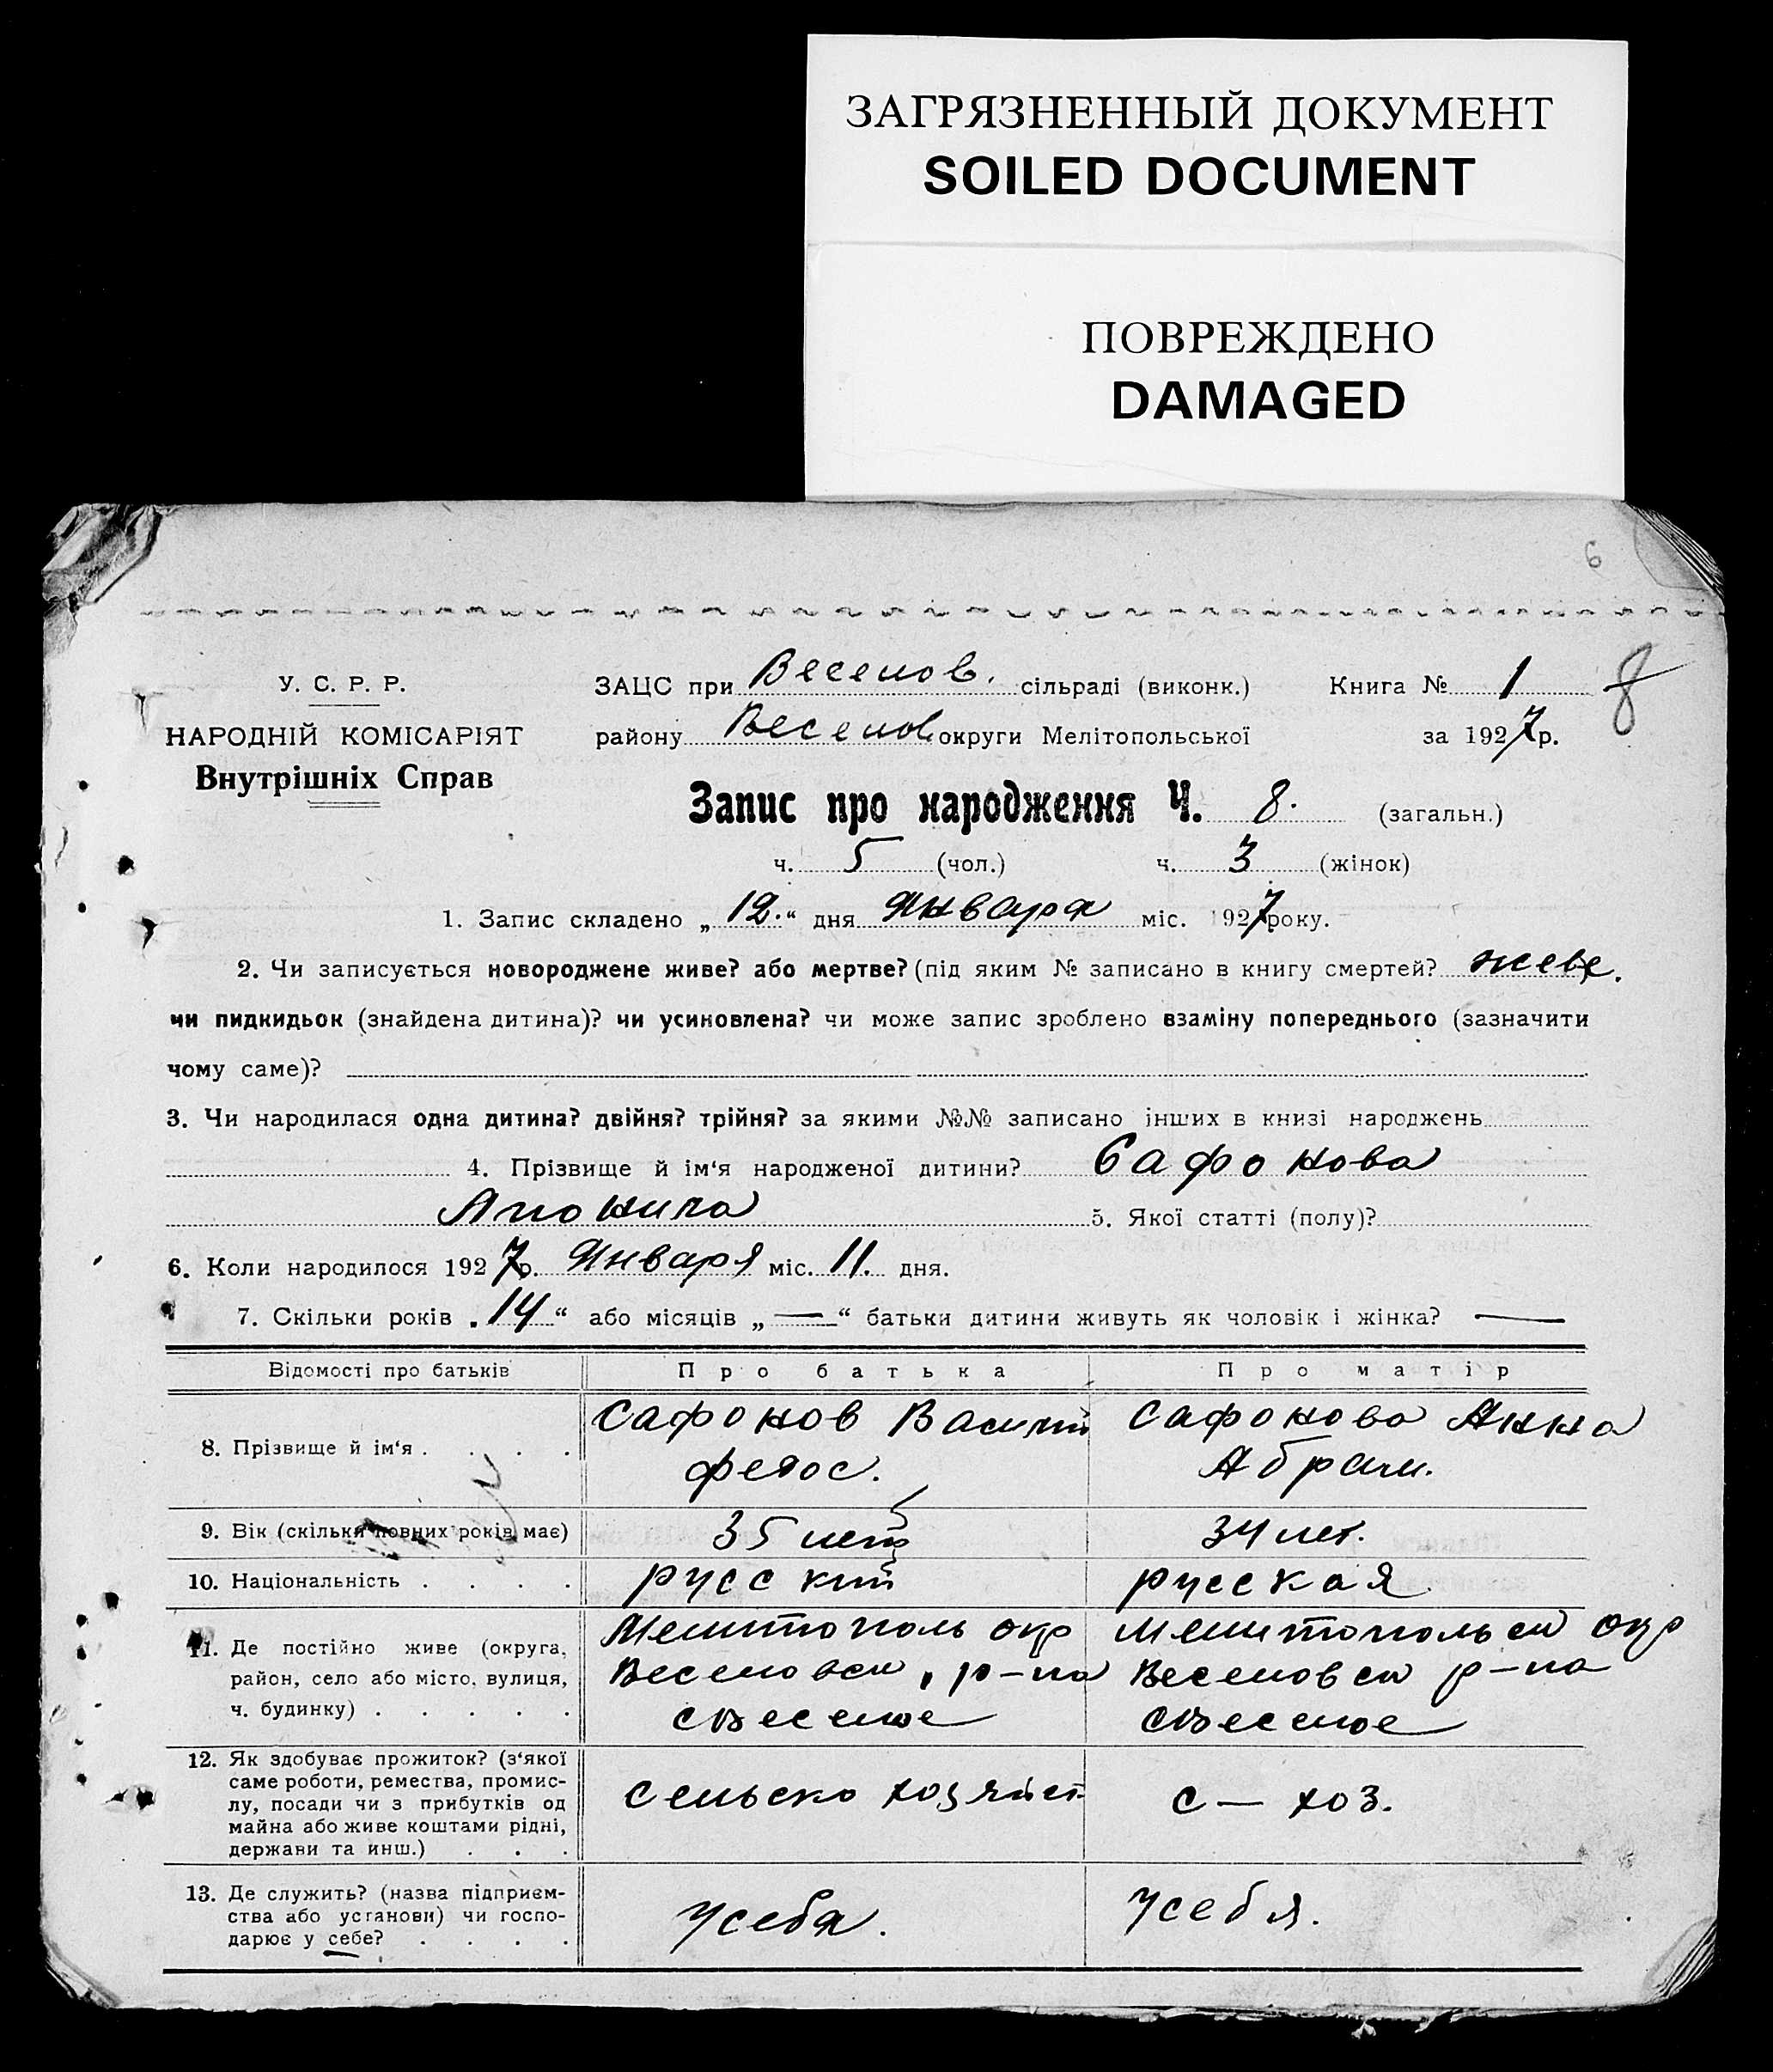 ЗАГРЯЗНЕННЫЙ ДОКУМЕНТ
SOILED DOCUMENT
ПОВРЕЖДЕНО
DAMAGED
6
У. С. Р. Р.
НАРОДНІЙ КОМІСАРІЯТ
Внутрішніх Справ
ЗАЦС при Веселов. сільраді (виконк.) Книга № 1 8
району Веселов. округи Мелітопольської за 1927 р.
Запис про народження Ч. 8. (загальн.)
ч. 5 (чол.) ч. 3 (жінок)
1. Запис складено „12.“ дня Января міс. 1927 року.
2. Чи записується новороджене живе? або мертве? (під яким № записано в книгу смертей?
чи пидкидьок (знайдена дитина)? чи усиновлена? чи може запис зроблено взаміну попереднього (зазначити
чому саме)?
3. Чи народилася одна дитина? двійня? трійня? за якими №№ записано інших в книзі народжень
4. Прізвище й ім'я народженої дитини? Сафонова
5. Якої статті (полу)?
6. Коли народилося 1927 р. Января міс. 11. дня.
7. Скільки років „14“ або місяців „—“ батьки дитини живуть як чоловік і жінка? —
Відомості про батьків Про батька Про матір
8. Прізвище й ім'я . . . . Сафонов Василий Сафонова Анна
Федос. Абрам.
9. Вік (скільки повних років має) 35 лет 34 лет.
10. Національність . . . . русский русская
11. Де постійно живе (округа, Мелитополь окр Мелитопольск окр
район, село або місто, вулиця, Веселовск. р-на Веселовск р-на
ч. будинку) . . . . . с Веселое с Веселое
12. Як здобуває прожиток? (з'якої
саме роботи, ремества, промис-
лу, посади чи з прибутків од
майна або живе коштами рідні,
держави та инш.) . . . сельско хозяйст с — хоз.
13. Де служить? (назва підприєм-
ства або установи) чи госпо-
дарює у себе? . . . . у себя. у себя.